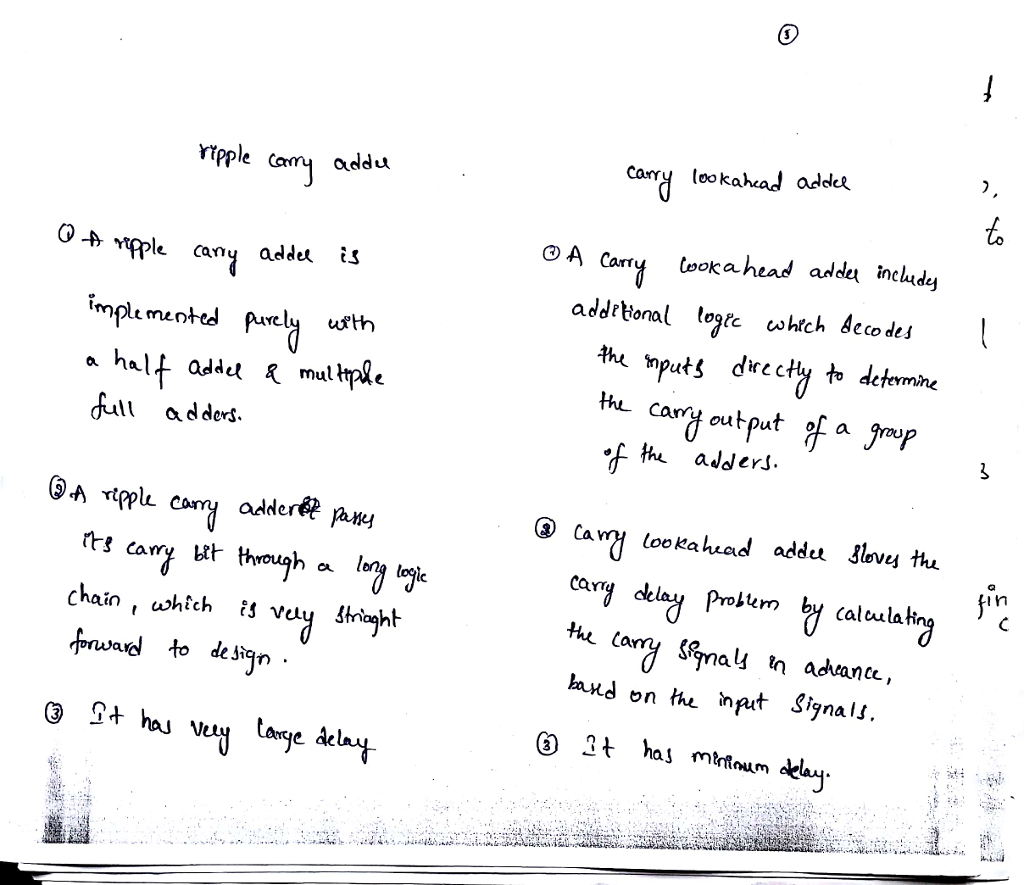 5
ripple carry adder
① A ripple carry adder is
implemented purely with
a half adder & multiple
full adders.
② A ripple carry adder passes
its carry bit through a long logic
chain, which is very striaght
forward to design.
③ It has very large delay
carry lookahead adder
① A carry lookahead adder includes
additional logic which decodes
the inputs directly to determine
the carry output of a group
of the adders.
② carry lookahead adder sloves the
carry delay problem by calculating
the carry signals in advance,
based on the input signals.
③ It has minimum delay.
to
3
fin
c